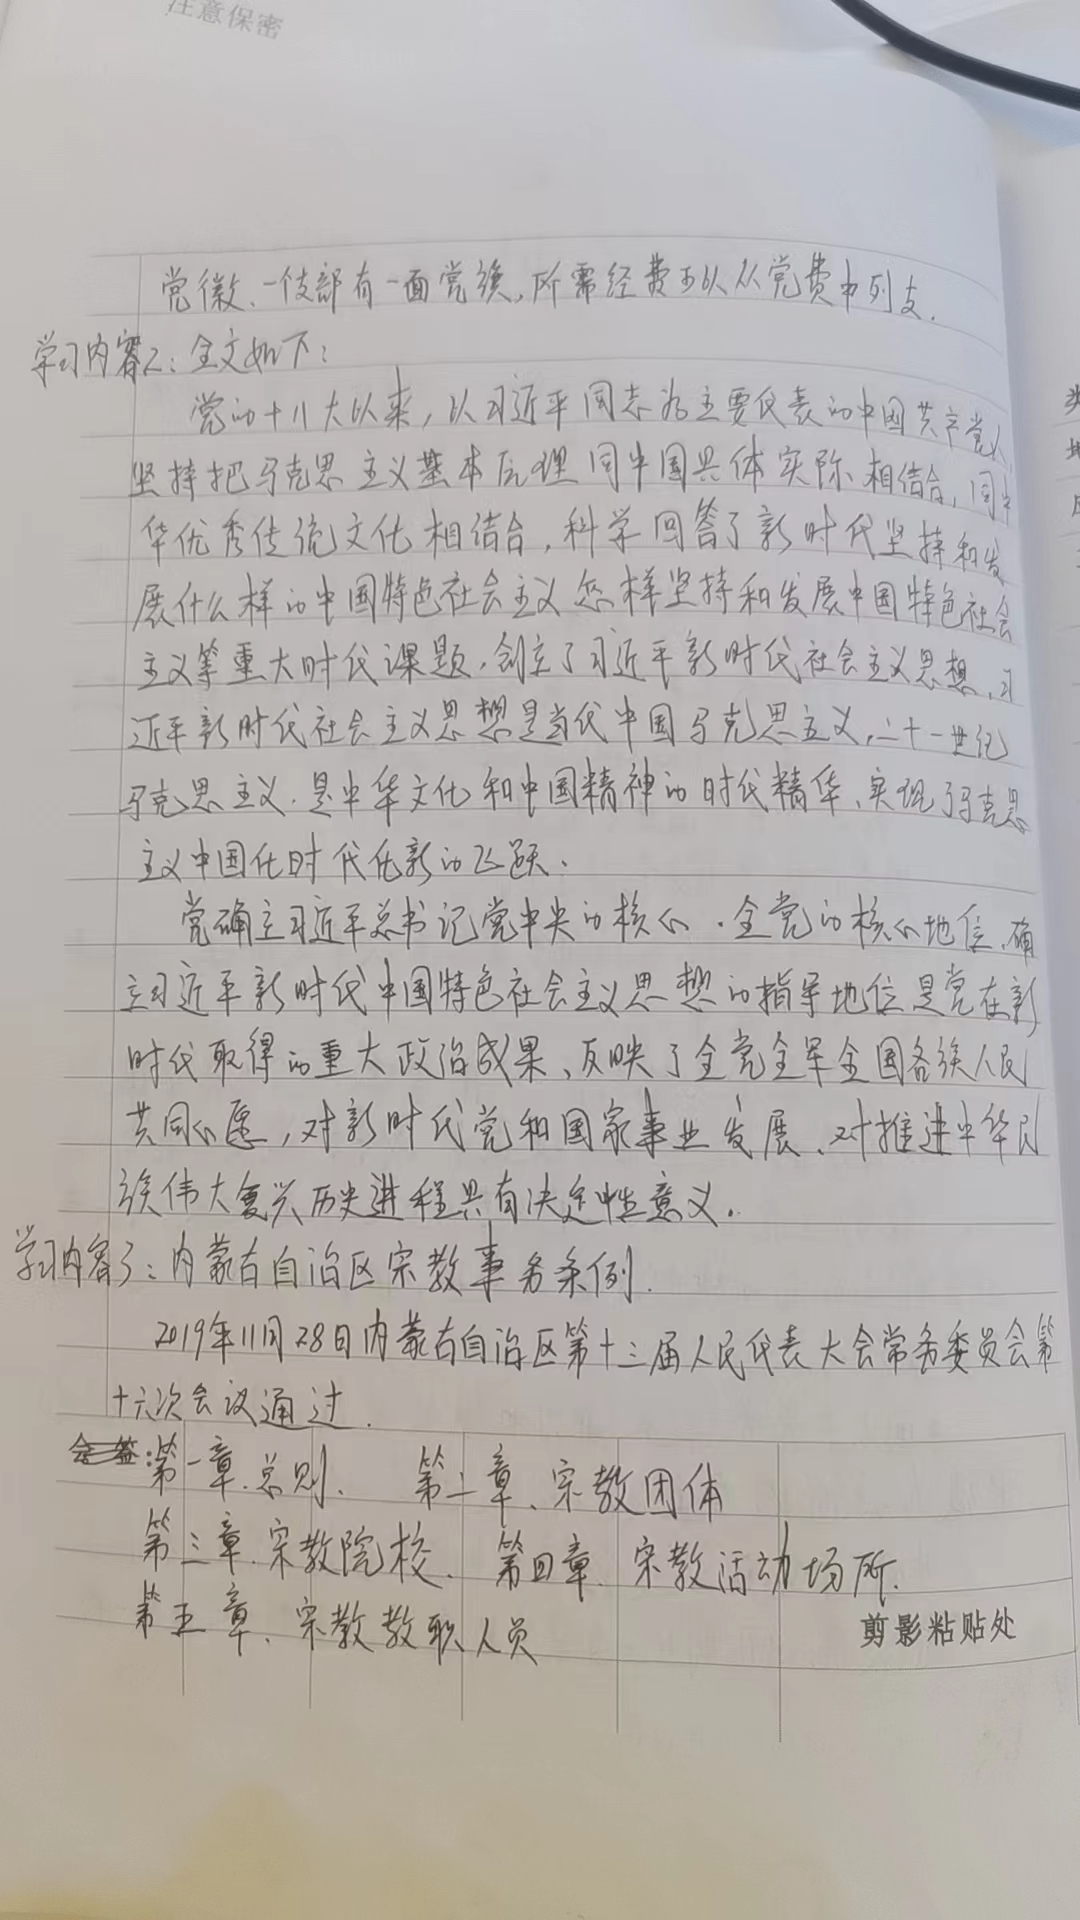 注意保密
党徽、一支部有一面党旗,所需经费可以从党费中列支.
学习内容2:全文如下:
党的十八大以来,以习近平同志为主要代表的中国共产党人,
坚持把马克思主义基本原理同中国具体实际相结合,同中
华优秀传统文化相结合,科学回答了新时代坚持和发
展什么样的中国特色社会主义怎样坚持和发展中国特色社会
主义等重大时代课题,创立了习近平新时代社会主义思想,习
近平新时代社会主义思想是当代中国马克思主义,二十一世纪
马克思主义.是中华文化和中国精神的时代精华、实现了马克思
主义中国化时代化新的飞跃.
党确立习近平总书记党中央的核心.全党的核心地位、确
立习近平新时代中国特色社会主义思想的指导地位是党在新
时代取得的重大政治成果、反映了全党全军全国各族人民
共同心愿,对新时代党和国家事业发展、对推进中华民
族伟大复兴历史进程具有决定性意义.
学习内容3:内蒙古自治区宗教事务条例.
2019年11月28日内蒙古自治区第十三届人民代表大会常务委员会第
十六次会议通过.
会签:第一章.总则、 第二章、宗教团体
第三章.宗教院校、 第四章、宗教活动场所.
第五章、宗教教职人员
剪影粘贴处